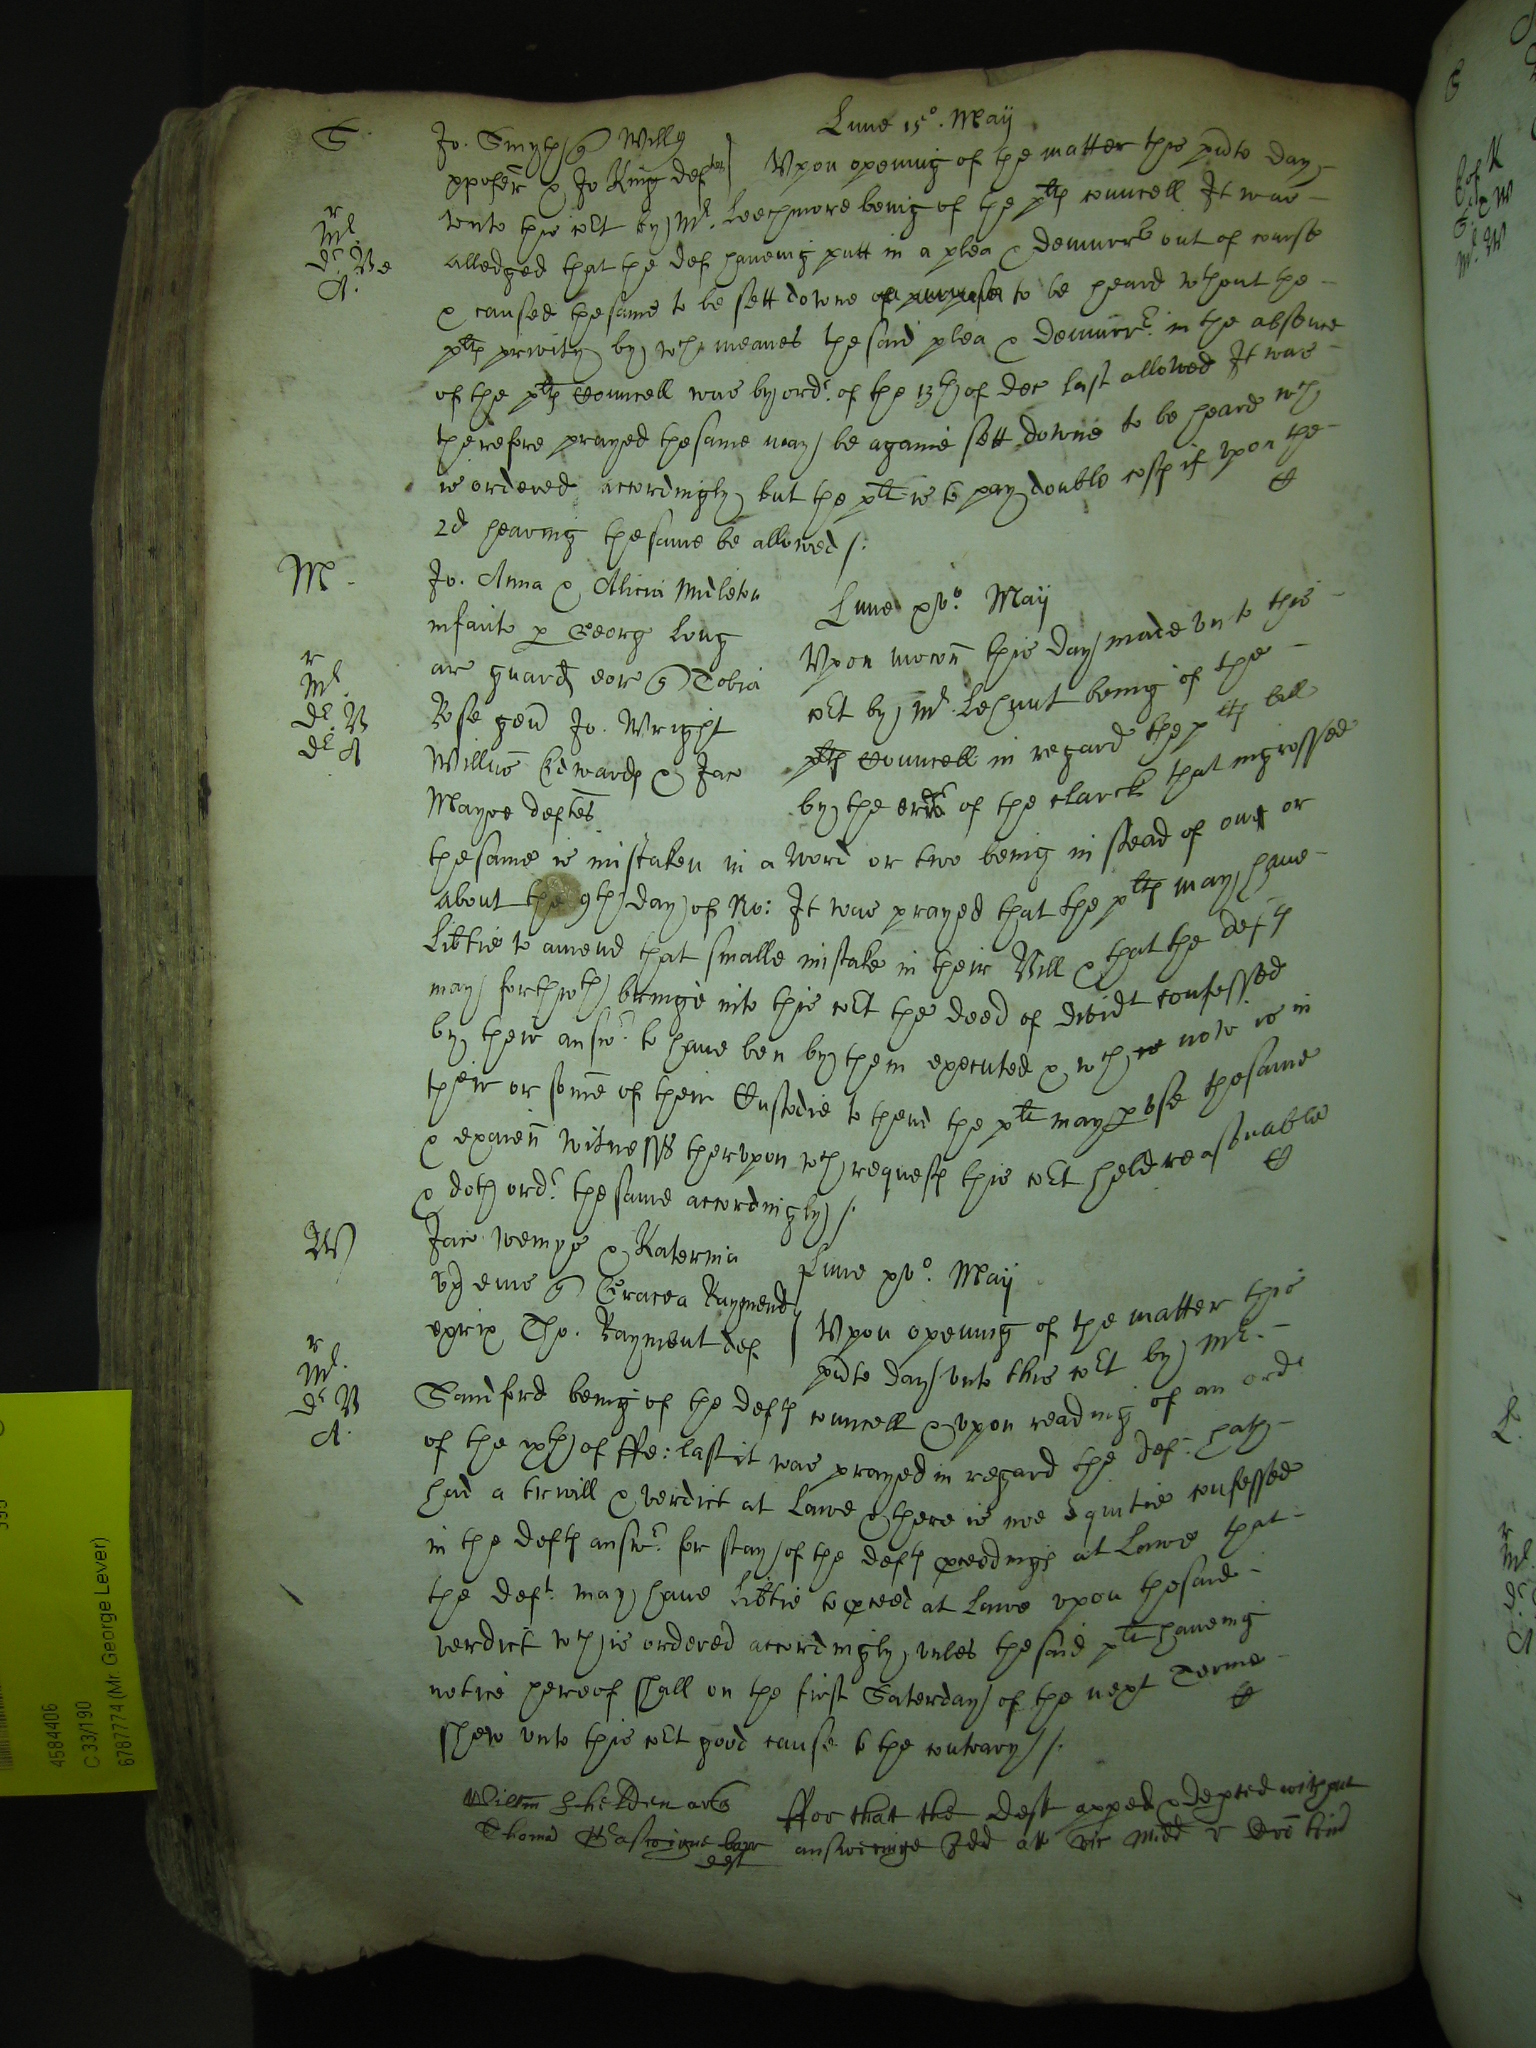 S.
Lune 15º. Maij
Jo. Smyth Willo
& Jo King def
Upon opening of the matter this pnte day
unto this coʳt by Mʳ. Leechmore being of the plts councell It was
alledged that the def haveing putt in a plea & demurrʳ out of course
& caused the same to be sett downe to be heard wthout the
plts privity by wch meanes the said plea & demurrʳ. in the absence
of the plts Councell was by ordʳ. of the 13th of Dec last allowed It was
therefore prayed the same may be againe sett downe to be heard wch
is ordered accordingly but the plt is to pay double costs if upon the
2d hearing the same be allowed /.
r
Mʳ
A.
M
Jo. Anna & Alicia Midleton
infants p Georg Long
ar guard eor Tobia
Rose gen Jo. Wright
Willus Edwards & Jac
Mayoe deftes
Lune xvº. Maij
Upon mocon this day made unto this
coʳt by Mʳ. Lehunt being of the
plts Councell in regard the plts bill
by the errʳ of the clarck that ingrossed
the same is mistaken in a word or two being in stead of on or
about the 9th day of No: It was prayed that the plts may have
libtie to amend that smalle mistake in their Bill & that the defts
may forthwth bringe into this coʳt the deed of confessed
by their answʳ. to have ben by them executed & wch now is in
their or some of their Custodie to thend the plt may pvse the same
& examen witnesses therupon wch request this coʳt held reasonable
& doth ordʳ. the same accordingly /.
r
Mʳ.
dʳ. B
dʳ A
W
Jaco Wemys & Katerina
ux eius Gracea Rayment
exrix Tho. Rayment def
Lune xvº. Maij
Upon opening of the matter this
pnte day unto this coʳt by Mʳ.
Sandford being of the defts councell & upon reading of an ordʳ
of the ixth of ffe: last it was prayed in regard the def. hath
had a triall & verdict at Lawe & there is noe equitie confessed
in the defts answʳ. for stay of the defts pceedings at Lawe that
the deft. may have libtie to pceed at Lawe upon the said
verdict wch is ordered accordingly unles the said plt haveing
notice hereof shall on the first Saterday of the next Terme
shew unto this coʳt good cause to the contrary /.
r
Mʳ.
dʳ B
A.
Willm Shelden ar
Thomas Gascoigne barr
deft
ffor that the deft apped & depted without
answeringe Idd att vic Midd
4584406
C 33/190
6787774 (Mr. George Lever)